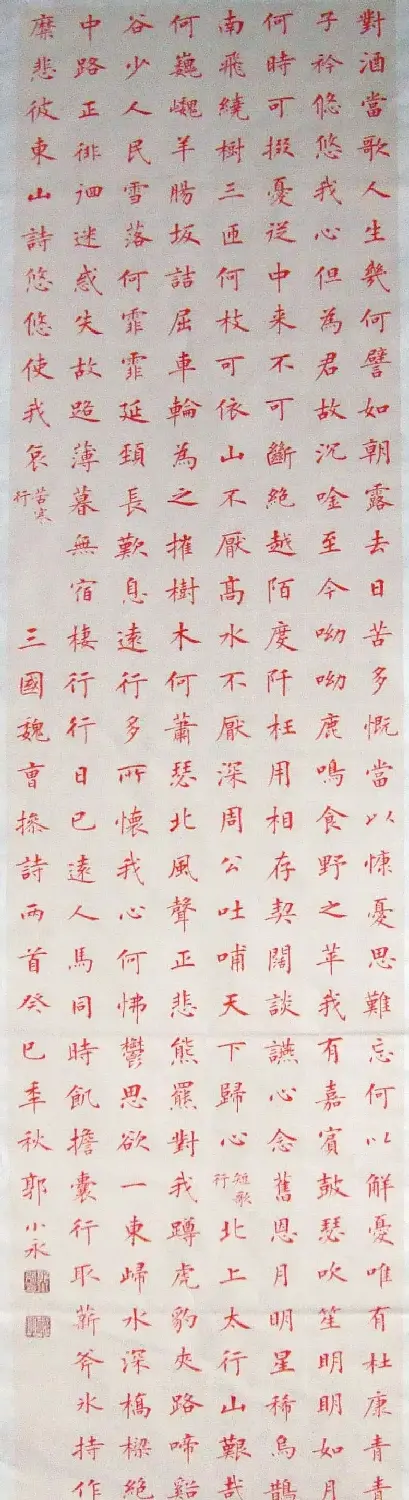 對酒當歌人生幾何譬如朝露去日苦多慨當以慷憂思難忘何以解憂唯有杜康青青
子衿悠悠我心但為君故沉唫至今呦呦鹿鳴食野之苹我有嘉賓鼓瑟吹笙明明如月
何時可掇憂從中来不可斷絕越陌度阡枉用相存契闊談讌心念舊恩月明星稀烏鵲
南飛繞樹三匝何枝可依山不厭高水不厭深周公吐哺天下歸心短歌行北上太行山艱哉
何巍巍羊腸坂詰屈車輪為之摧樹木何蕭瑟北風聲正悲熊羆對我蹲虎豹夾路啼谿
谷少人民雪落何霏霏延頸長歎息遠行多所懷我心何怫鬱思欲一東歸水深橋樑絕
中路正徘徊迷惑失故路薄暮無宿棲行行日已遠人馬同時飢擔囊行取薪斧冰持作
糜悲彼東山詩悠悠使我哀苦寒行 三國魏曹操詩兩首癸巳年秋郭小永